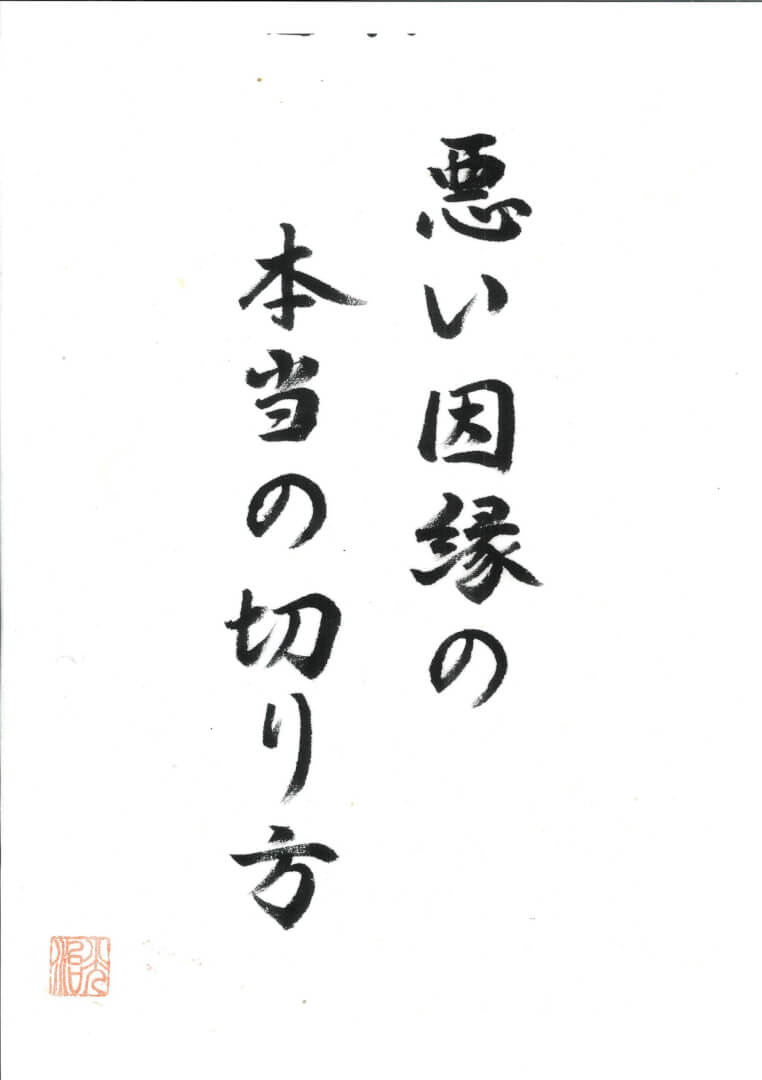 悪い因縁の
本当の切り方